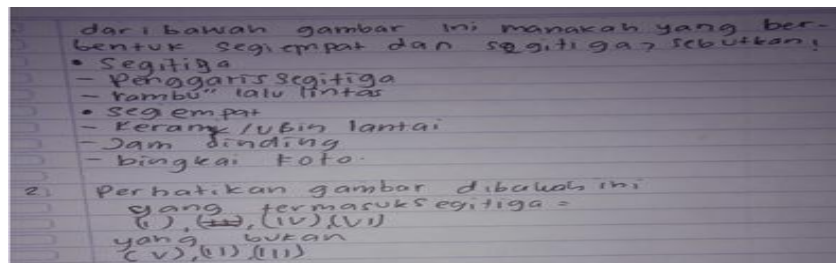 dari bawah gambar ini manakah yang ber-
bentuk segiempat dan segitiga, sebutkan!
• Segitiga
- Penggaris segitiga
- rambu" lalu lintas
• segiempat
- keramk/ubin lantai
- Jam dinding
- bingkai Foto.
2) Perhatikan gambar dibawah ini
yang termasuk segitiga =
(i), (iv), (vi)
yang bukan
(v), (ii), (iii)